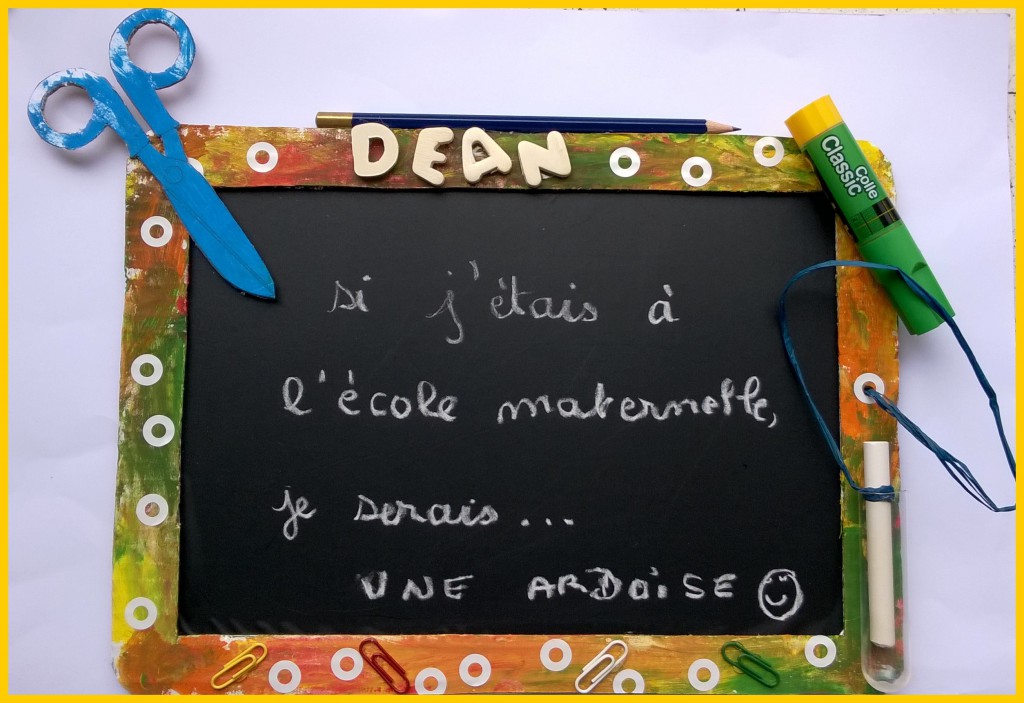 DEAN
Colle
Classic
si j'étais à
l'école maternelle,
je serais...
UNE ARDOiSE